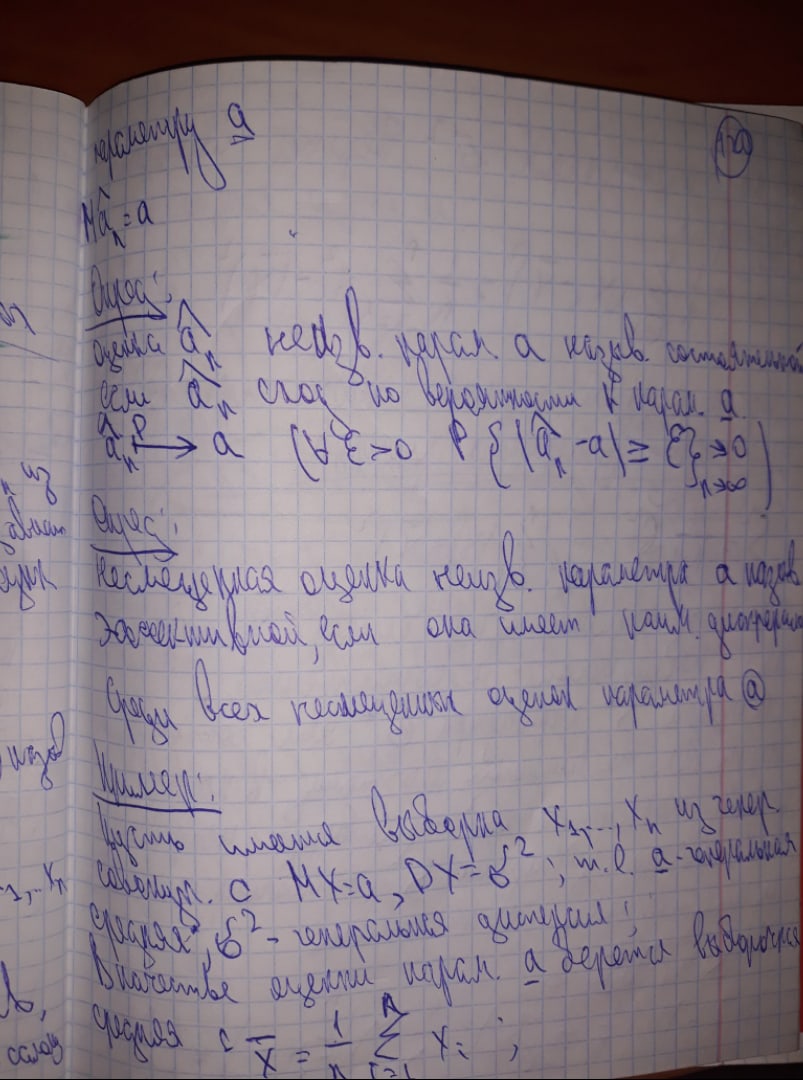 параметру a
Mâₙ = a
Опред:
оценка âₙ неизв. парам. a назыв. состоятельной
если âₙ сход по вероятности к парам. a
âₙ →ᴾ a (∀ε>0 P{|âₙ-a|≥ε} → 0 n→∞)
Опред:
Несмещенная оценка неизв. параметра a назыв
эффективной, если она имеет наим. дисперсию
среди всех несмещенных оценок параметра a
Пример:
Пусть имеется выборка X₁,..,Xₙ из генер.
совокуп. с MX=a, DX=σ²; т.е. a-генеральная
средняя, σ²-генеральная дисперсия;
В качестве оценки парам. a берется выборочная
средняя: X̄ = 1/n Σ i=1 n Xᵢ ;